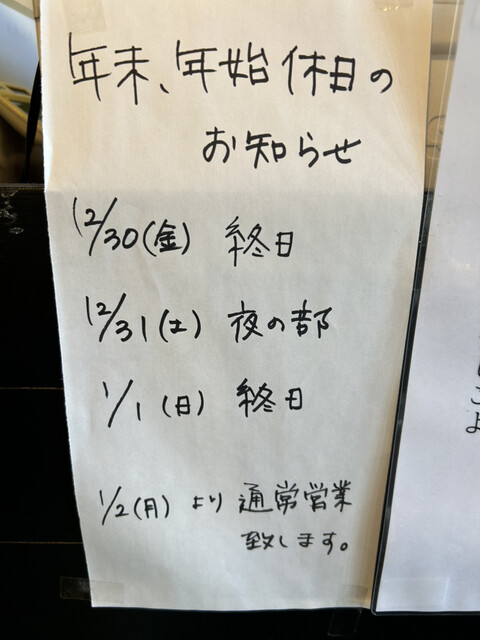 年末、年始休日の
お知らせ
12/30(金) 終日
12/31(土) 夜の部
1/1(日) 終日
1/2(月)より通常営業
致します。
こ
よ